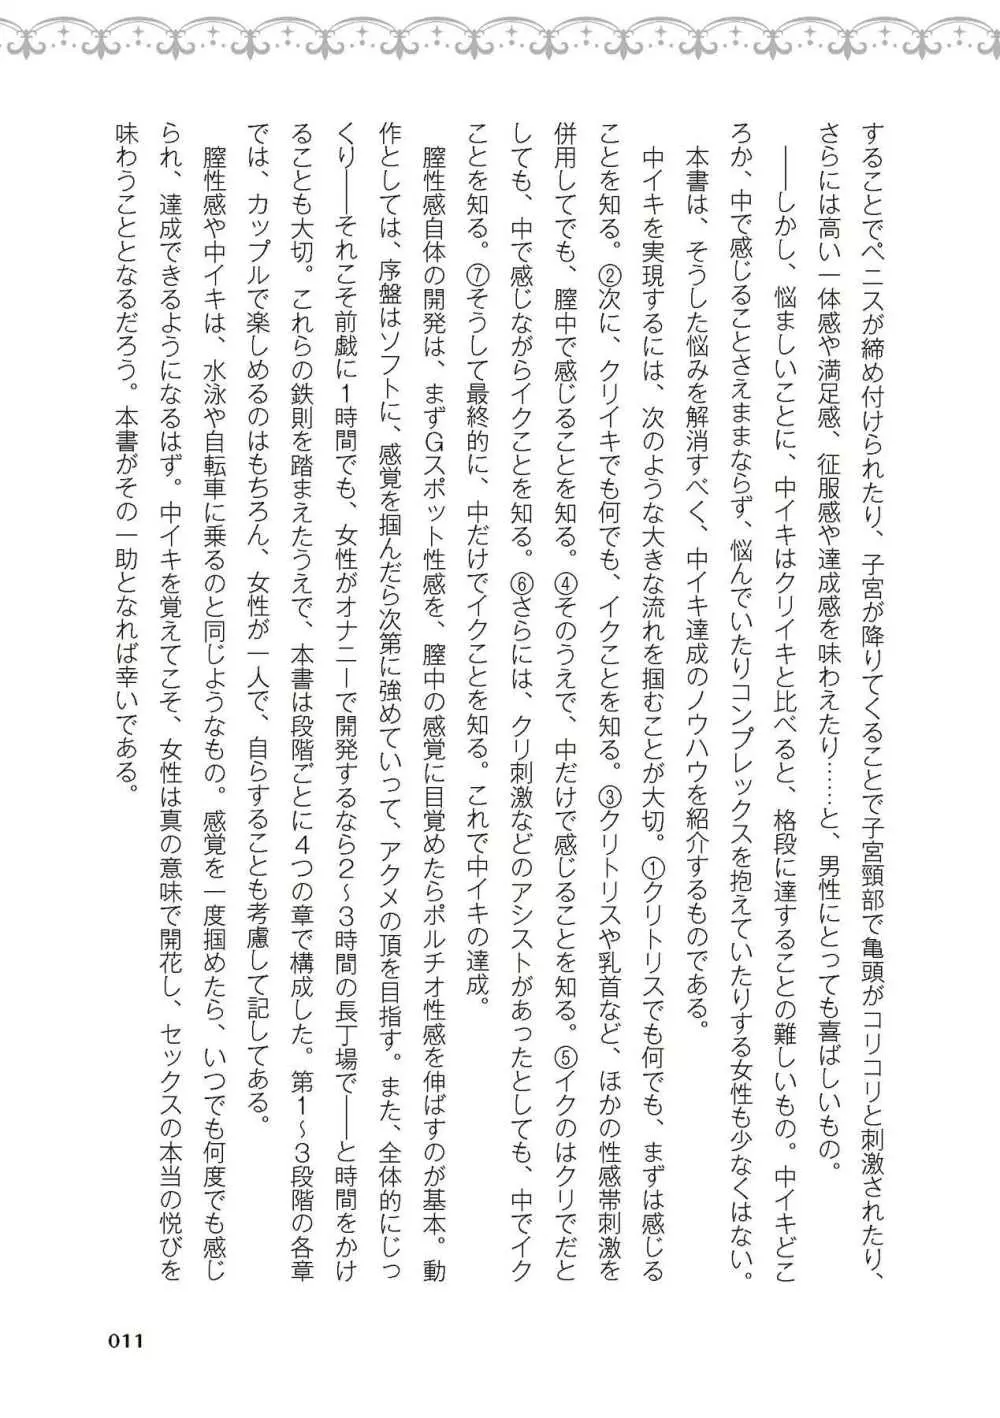 することでペニスが締め付けられたり、子宮が降りてくることで子宮頸部で亀頭がコリコリと刺激されたり、
さらには高い一体感や満足感、征服感や達成感を味わえたり……と、男性にとっても喜ばしいもの。
――しかし、悩ましいことに、中イキはクリイキと比べると、格段に達することの難しいもの。中イキどこ
ろか、中で感じることさえままならず、悩んでいたりコンプレックスを抱えていたりする女性も少なくはない。
本書は、そうした悩みを解消すべく、中イキ達成のノウハウを紹介するものである。
中イキを実現するには、次のような大きな流れを掴むことが大切。①クリトリスでも何でも、まずは感じる
ことを知る。②次に、クリイキでも何でも、イクことを知る。③クリトリスや乳首など、ほかの性感帯刺激を
併用してでも、膣中で感じることを知る。④そのうえで、中だけで感じることを知る。⑤イクのはクリでだと
しても、中で感じながらイクことを知る。⑥さらには、クリ刺激などのアシストがあったとしても、中でイク
ことを知る。⑦そうして最終的に、中だけでイクことを知る。これで中イキの達成。
膣性感自体の開発は、まずGスポット性感を、膣中の感覚に目覚めたらポルチオ性感を伸ばすのが基本。動
作としては、序盤はソフトに、感覚を掴んだら次第に強めていって、アクメの頂を目指す。また、全体的にじっ
くり――それこそ前戯に1時間でも、女性がオナニーで開発するなら2〜3時間の長丁場で――と時間をかけ
ることも大切。これらの鉄則を踏まえたうえで、本書は段階ごとに4つの章で構成した。第1〜3段階の各章
では、カップルで楽しめるのはもちろん、女性が一人で、自らすることも考慮して記してある。
膣性感や中イキは、水泳や自転車に乗るのと同じようなもの。感覚を一度掴めたら、いつでも何度でも感じ
られ、達成できるようになるはず。中イキを覚えてこそ、女性は真の意味で開花し、セックスの本当の悦びを
味わうこととなるだろう。本書がその一助となれば幸いである。
011